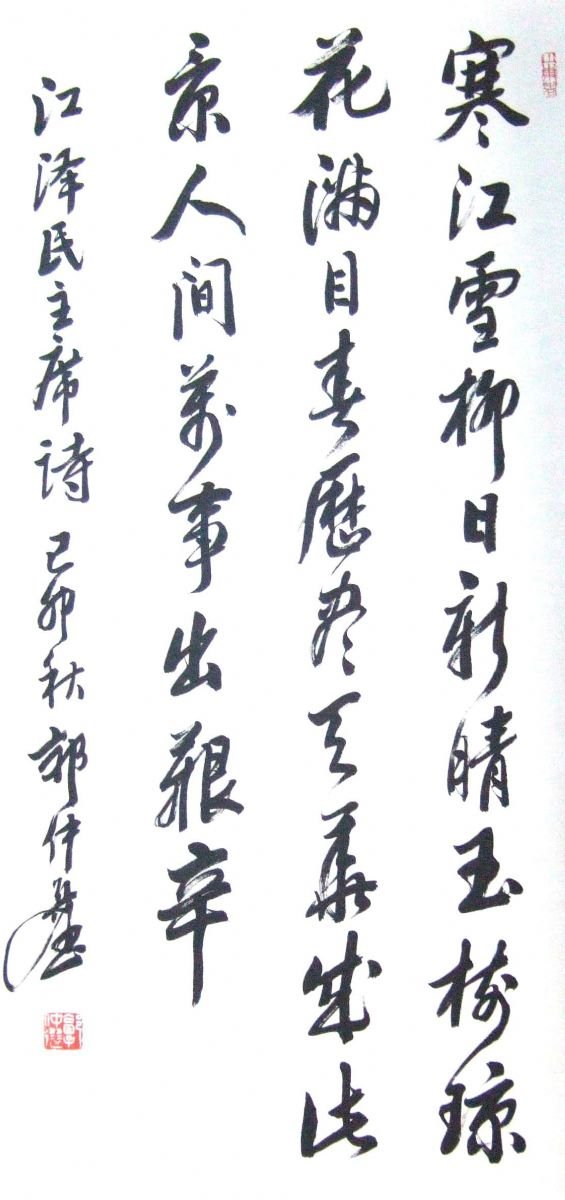 寒江雪柳日新晴玉树琼
花满目春歷尽天華成此
景人间萬事出艱辛
江泽民主席诗 己卯秋 郭仲